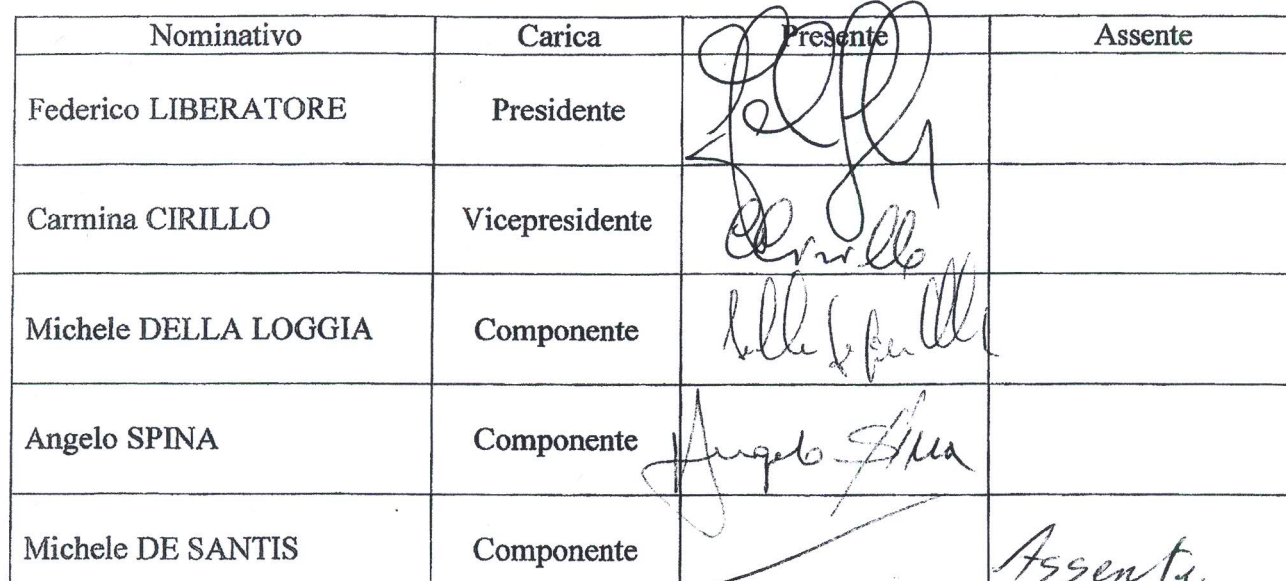 Nominativo Carica Presente Assente
Federico LIBERATORE Presidente
Carmina CIRILLO Vicepresidente Cirillo
Michele DELLA LOGGIA Componente
Angelo SPINA Componente Angelo Spina
Michele DE SANTIS Componente Assente